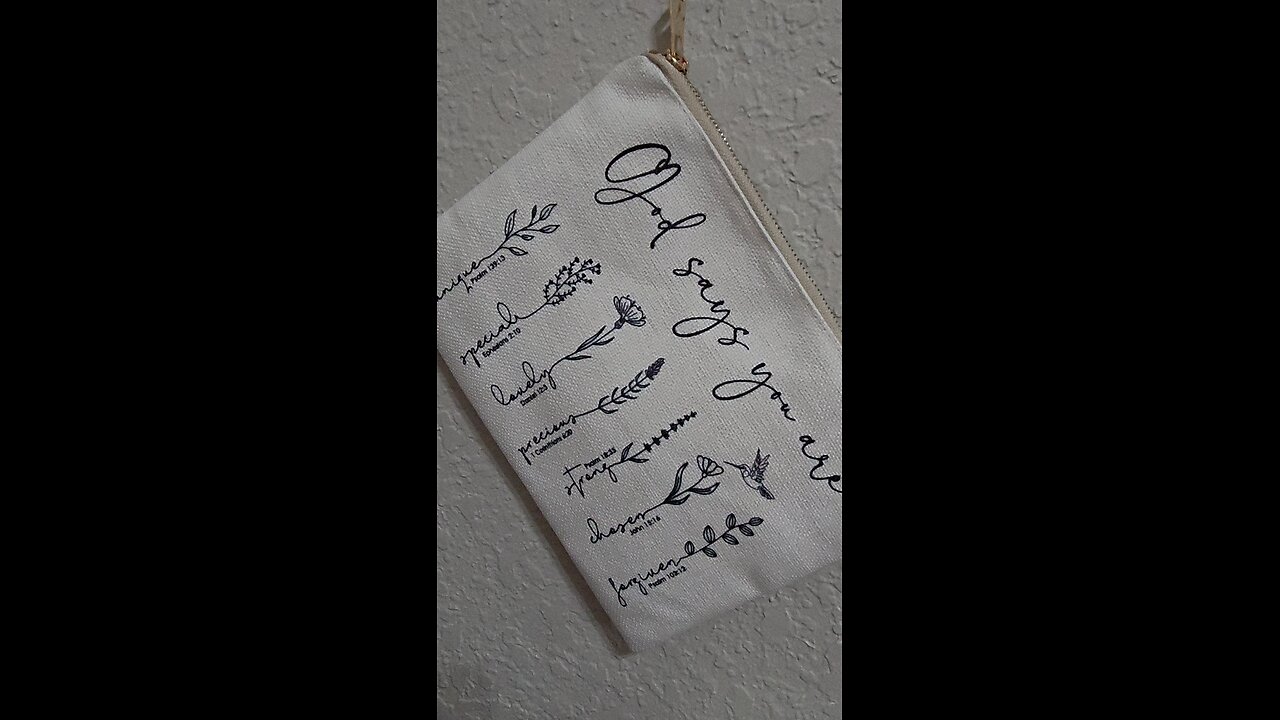 God says you are
unique
Psalm 139:13
special
Ephesians 2:10
lovely
Daniel 12:3
precious
1 Corinthians 6:20
strong
Psalm 18:35
chosen
John 15:16
forgiven
Psalm 103:12